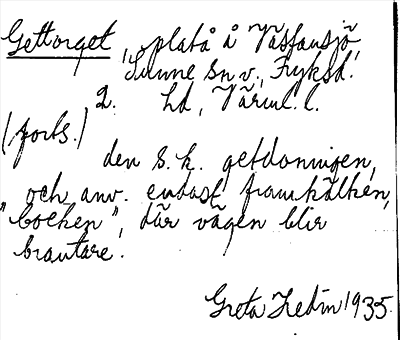 Gettorget, platå å Västansjö,
Sunne sn v., Fryksd.
2. hd, Värml. l.
(forts.)
den s.k. getdonningen,
och anv. endast framkälken,
"bocken", där vägen blir
brantare.
Greta Hedin 1935